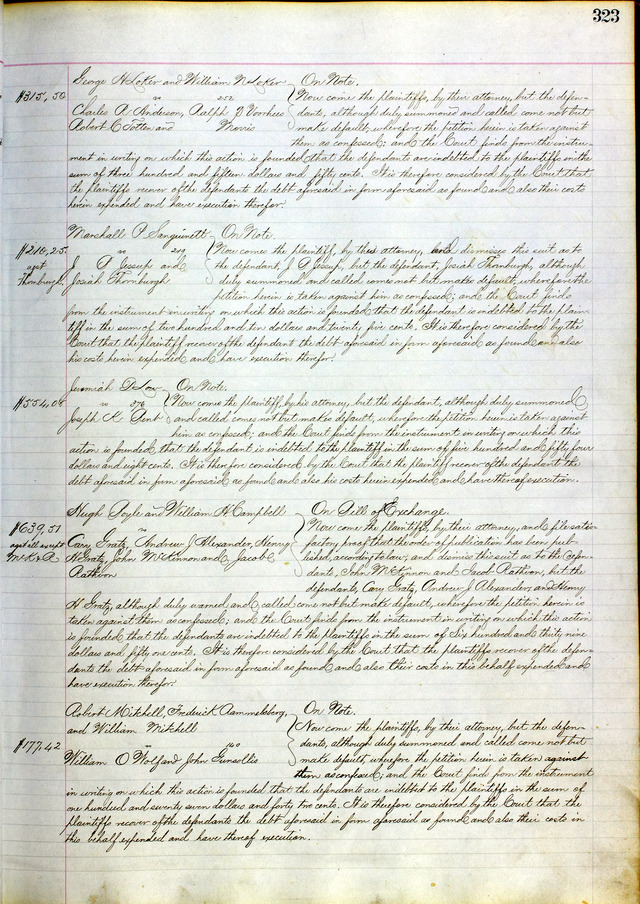 323
George H Loker and William N Loker On Note.
$315,50 vs 252 Now come the plaintiffs, by their attorney, but the defen-
Charles R Anderson, Ralph Voorhees dants, although duly summoned and called come not but
Robert C Totten and Morris make default, wherefore the petition herein is taken against
them as confessed; and the Court finds from the instru-
ment in writing on which this action is founded, that the defendants are indebted to the plaintiffs in the
sum of three hundred and fifteen dollars and fifty cents. It is therefore considered by the Court that
the plaintiffs recover of the defendants the debt aforesaid in form aforesaid as found and also their costs
herein expended and have execution therefor.
Marshall P Sanguinett On Note.
$210,25 vs Now comes the plaintiff, by their attorney, and dismisses this suit as to
agst J. P Jessup and the defendant, J P Jessup, but the defendant, Josiah Thornburgh, although
Thornburgh Josiah Thornburgh duly summoned and called comes not but makes default, wherefore the
petition herein is taken against him as confessed; and the Court finds
from the instrument in writing on which this action is founded, that the defendant is indebted to the plain-
tiff in the sum of two hundred and ten dollars and twenty five cents. It is therefore considered by the
Court that the plaintiff recover of the defendant the debt aforesaid in form aforesaid as found and also
his costs herein expended and have execution therefor.
Jeremiah On Note.
$554,08 vs Now comes the plaintiff by his attorney, but the defendant, although duly summoned
Joseph K Dent and called comes not but makes default, wherefore the petition herein is taken against
him as confessed, and the Court finds from the instrument in writing on which this
action is founded, that the defendant is indebted to the plaintiff in the sum of five hundred and fifty four
dollars and eight cents. It is therefore considered by the Court that the plaintiff recover of the defendant the
debt aforesaid in form aforesaid as found and also his costs herein expended and have thereof execution.
Hugh Boyle and William H Campbell On Bill of Exchange.
$639,51 vs Now come the plaintiffs, by their attorney, and file satis-
agst all except Cary Gratz, Andrew J Alexander, Henry factory proof that the order of publication has been pub-
McK & R H Gratz, John McKinnon and Jacob lished, according to law; and dismiss this suit as to the defen-
Rathvon dants, John McKinnon and Jacob Rathvon, but the
defendants, Cary Gratz, Andrew J Alexander, and Henry
H Gratz, although duly warned and called come not but make default, wherefore the petition herein is
taken against them as confessed; and the Court finds from the instrument in writing on which this action
is founded that the defendants are indebted to the plaintiffs in the sum of Six hundred and thirty nine
dollars and fifty one cents. It is therefore considered by the Court that the plaintiffs recover of the defen-
dants the debt aforesaid in form aforesaid as found and also their costs in this behalf expended and
have execution therefor.
Robert Mitchell, Frederick Rammelsberg, On Note.
and William Mitchell Now come the plaintiffs, by their attorney, but the defen-
$177,42 vs 140 dants, although duly summoned and called come not but
William O Wolf and John Gunsollis make default, wherefore the petition herein is taken against
them as confessed; and the Court finds from the instrument
in writing on which this action is founded that the defendants are indebted to the plaintiffs in the sum of
one hundred and seventy seven dollars and forty two cents. It is therefore considered by the Court that the
plaintiffs recover of the defendants the debt aforesaid in form aforesaid as found and also their costs in
this behalf expended and have thereof execution.